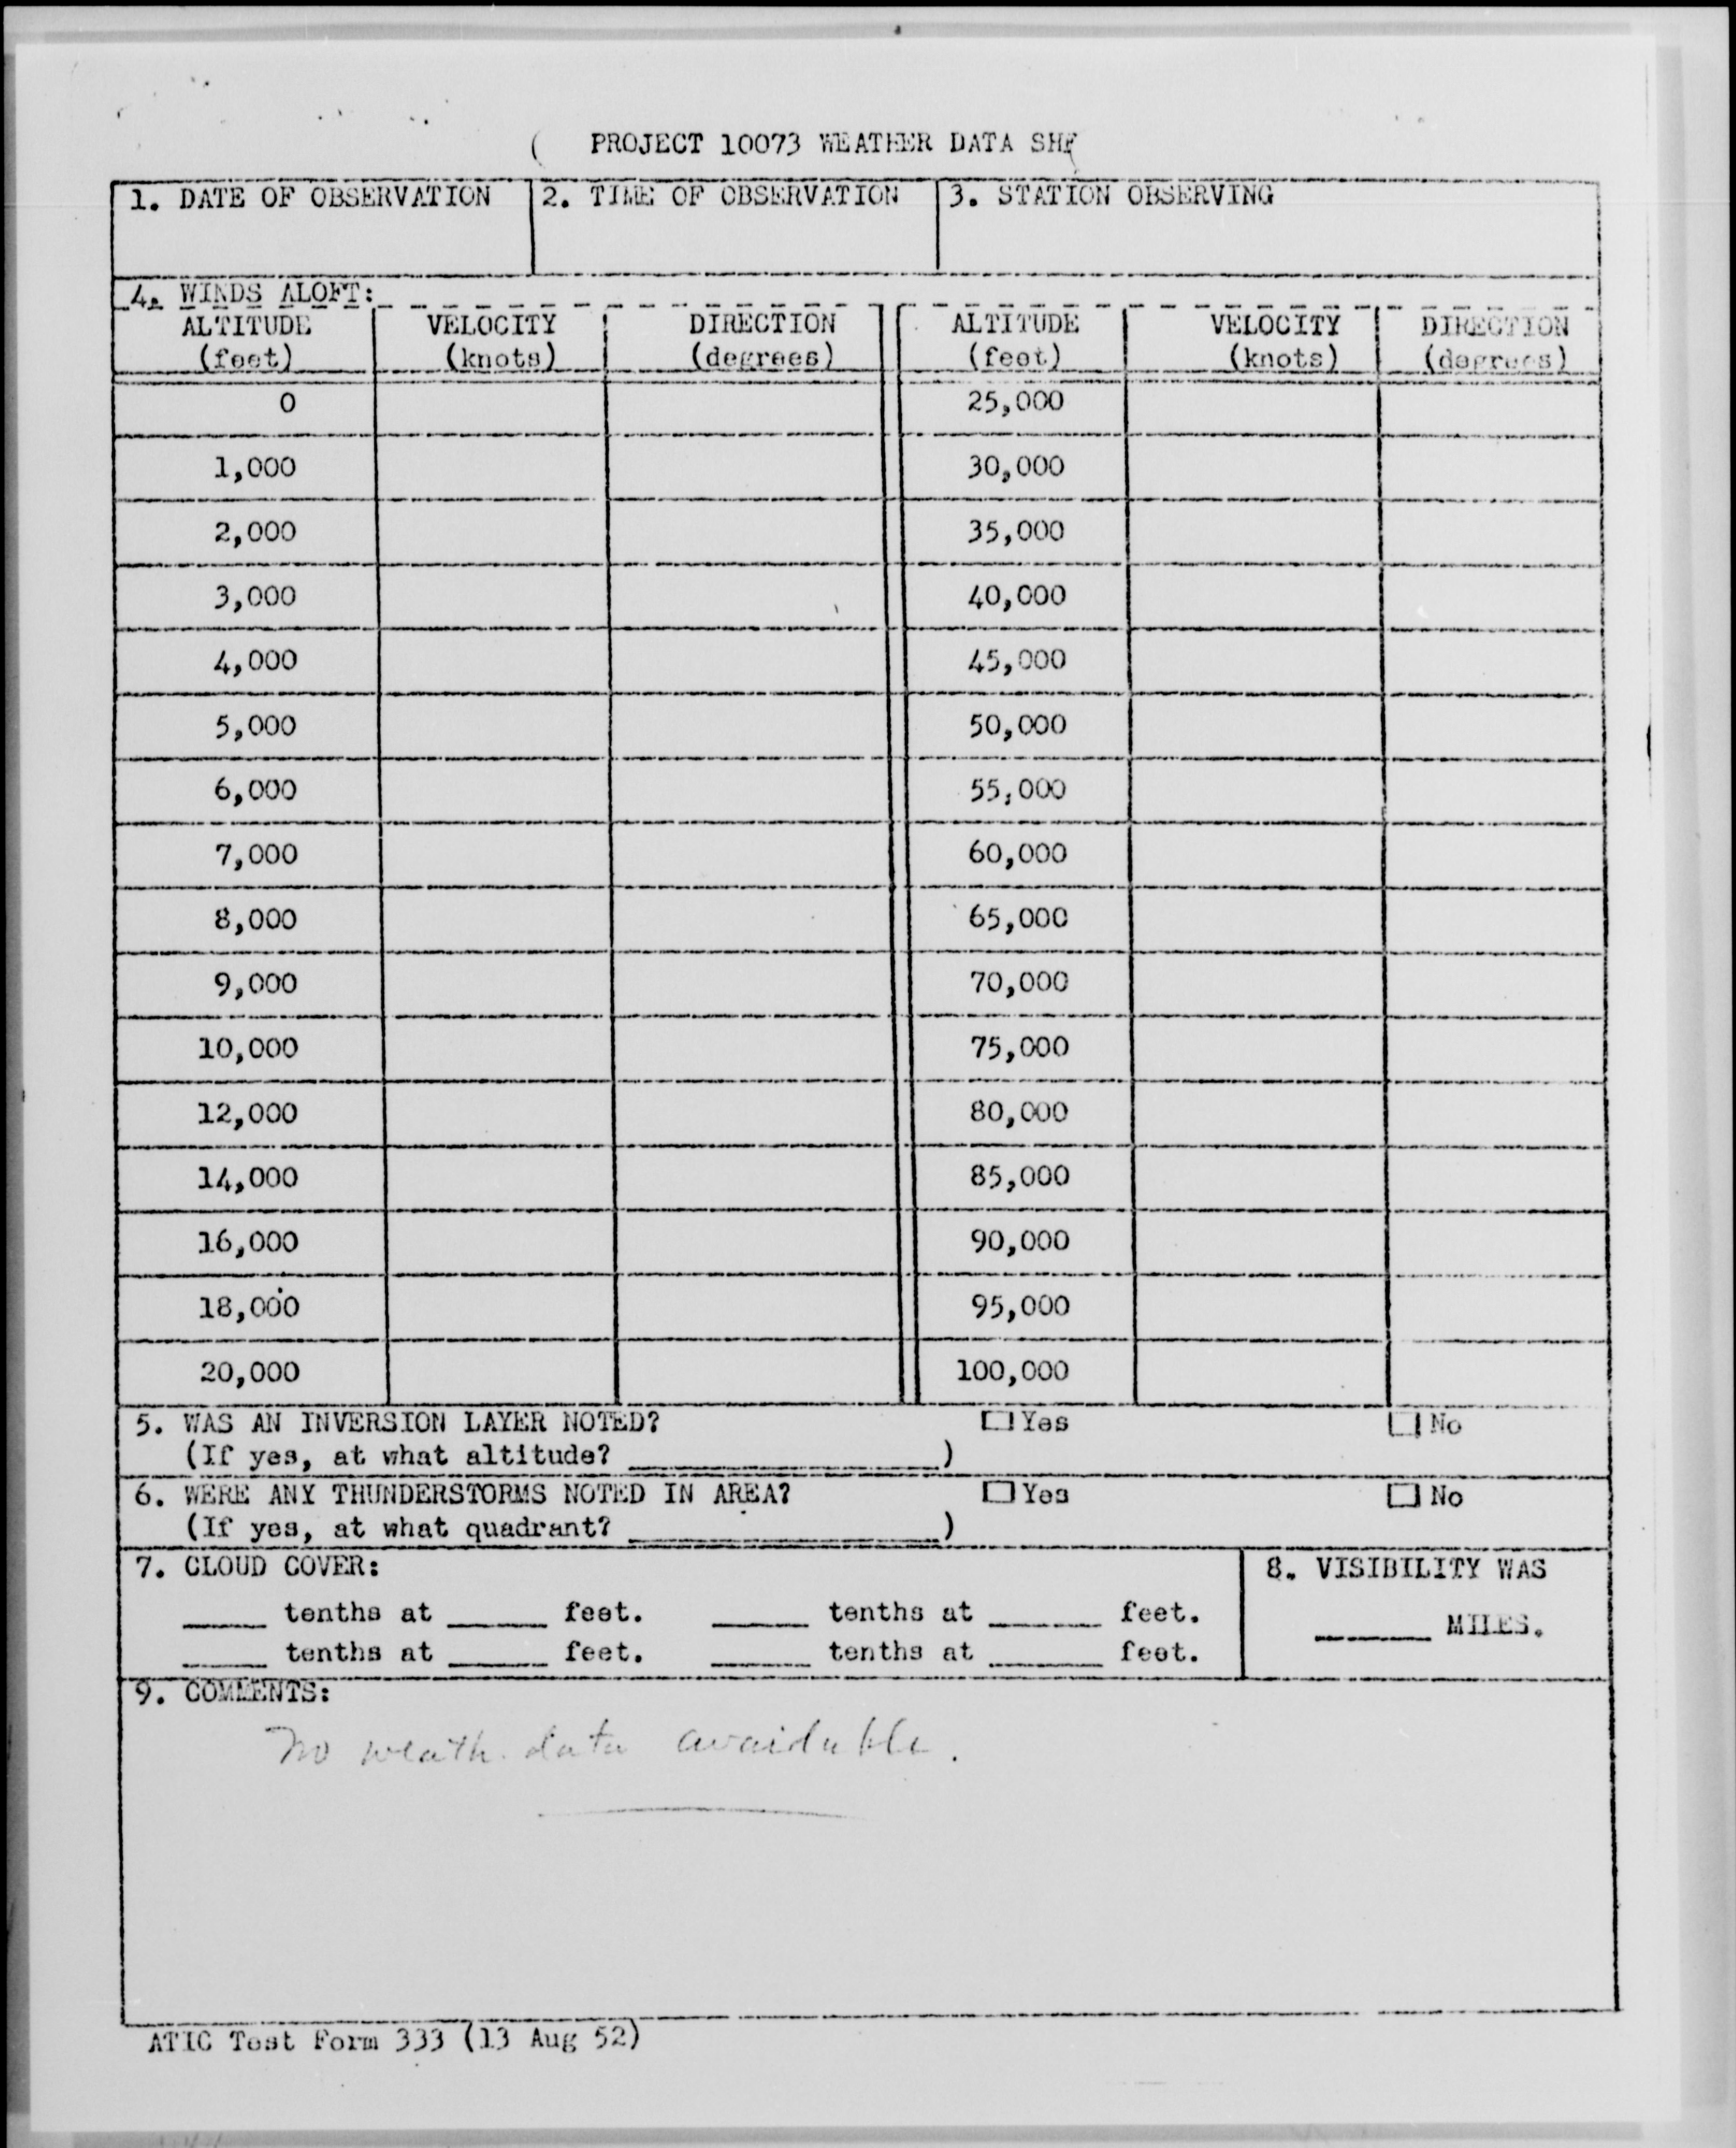 PROJECT 10073 WEATHER DATA SHE
1. DATE OF OBSERVATION 2. TIME OF OBSERVATION 3. STATION OBSERVING
4. WINDS ALOFT:
ALTITUDE VELOCITY DIRECTION ALTITUDE VELOCITY DIRECTION
(feet) (knots) (degrees) (feet) (knots) (degrees)
0 25,000
1,000 30,000
2,000 35,000
3,000 40,000
4,000 45,000
5,000 50,000
6,000 55,000
7,000 60,000
8,000 65,000
9,000 70,000
10,000 75,000
12,000 80,000
14,000 85,000
16,000 90,000
18,000 95,000
20,000 100,000
5. WAS AN INVERSION LAYER NOTED? Yes No
(If yes, at what altitude? ____________)
6. WERE ANY THUNDERSTORMS NOTED IN AREA? Yes No
(If yes, at what quadrant? ____________)
7. CLOUD COVER: 8. VISIBILITY WAS
____ tenths at ____ feet. ____ tenths at ____ feet. ____ MILES.
____ tenths at ____ feet. ____ tenths at ____ feet.
9. COMMENTS:
No weath. data available.
ATIC Test Form 333 (13 Aug 52)